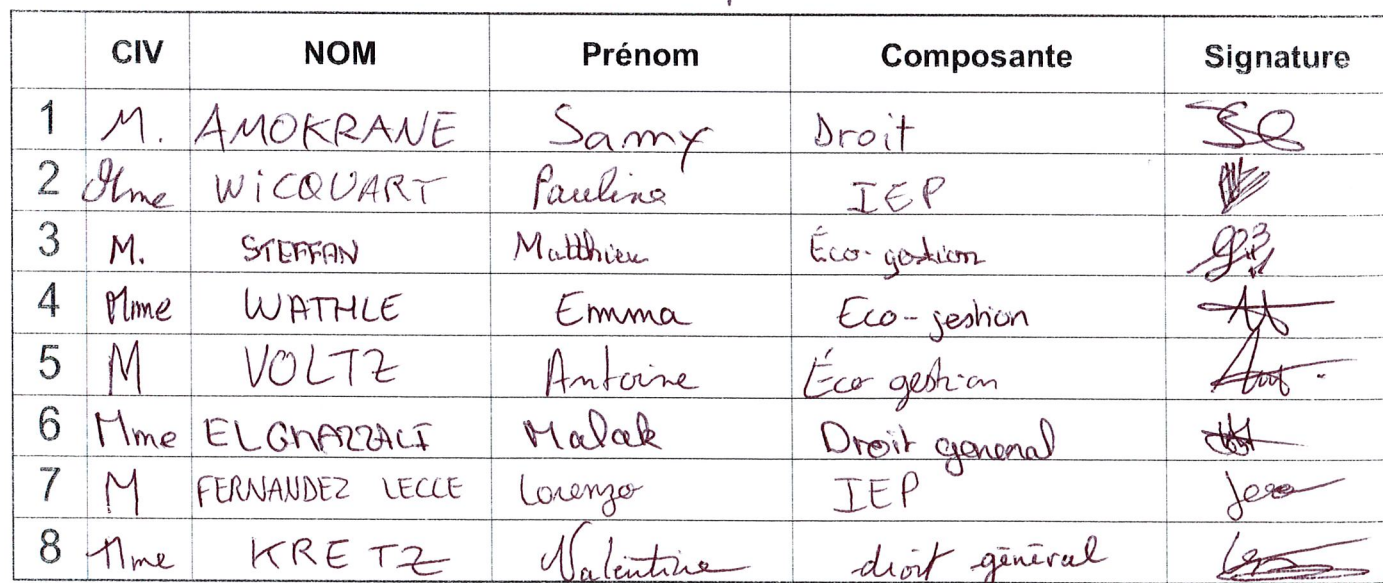 CIV NOM Prénom Composante Signature
1 M. AMOKRANE Samy Droit
2 Mme WiCQUART Pauline IEP
3 M. STEFFAN Matthieu Éco-gestion
4 Mme WATHLE Emma Eco-jestion
5 M VOLTZ Antoine Éco gestion
6 Mme ELGhAZZALI Malak Droit general
7 M FERNANDEZ LECCE Lorenzo IEP
8 Mme KRETZ Valentine droit général